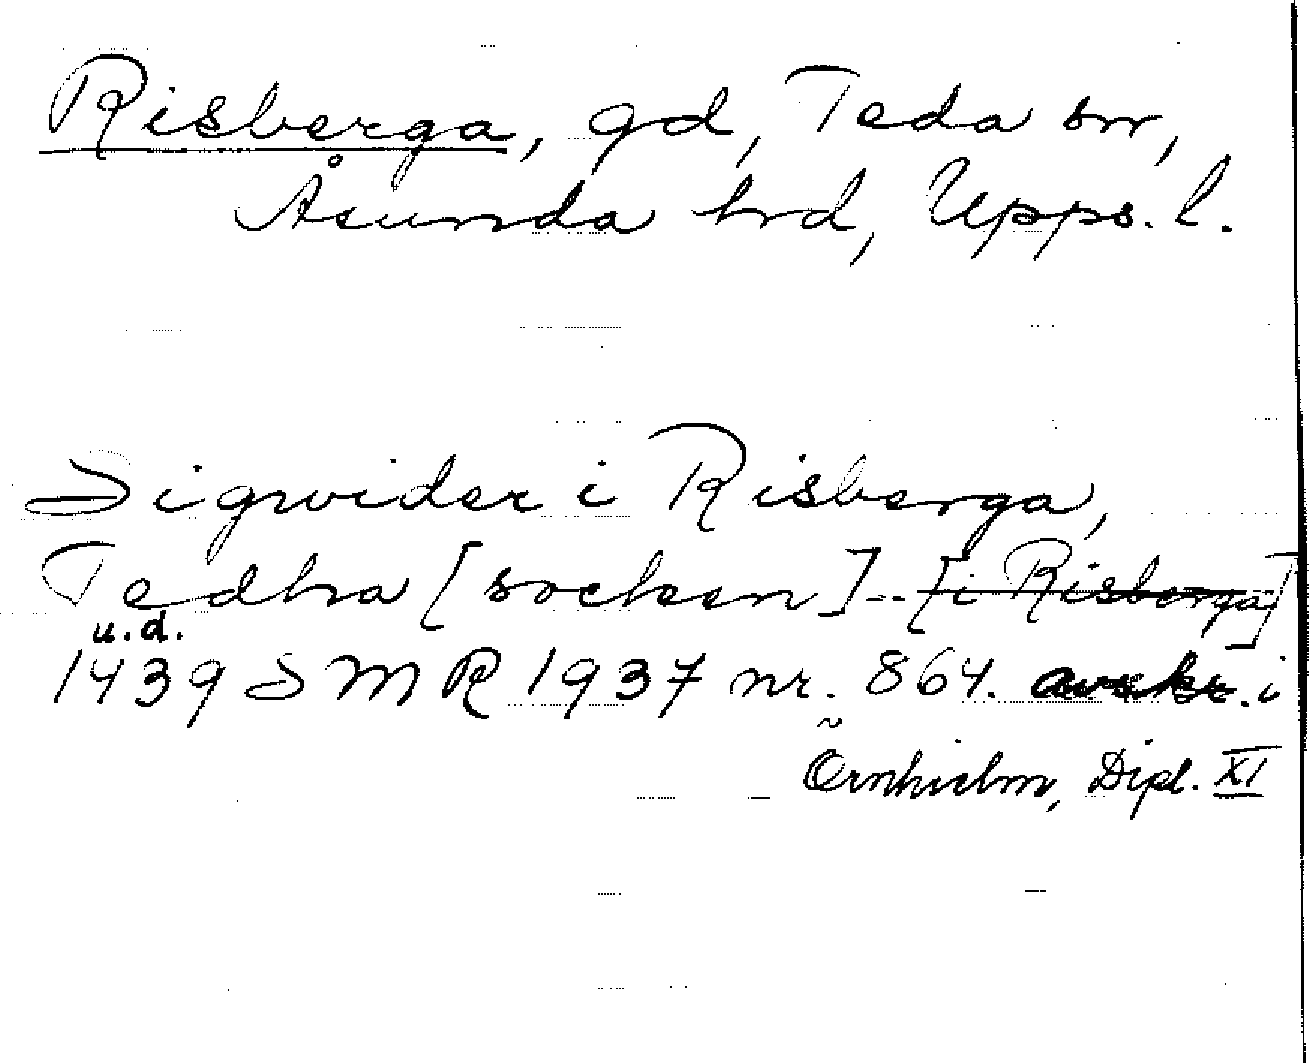 Risberga, gd, Teda sn,
Åsunda hrd, Upps. l.
Sigwider i Risberga,
Tedha [socken] -- [i Risberga]
u.d.
1439 SMR 1937 nr. 864. avskr. i
Örnhielm, Dipl. XI